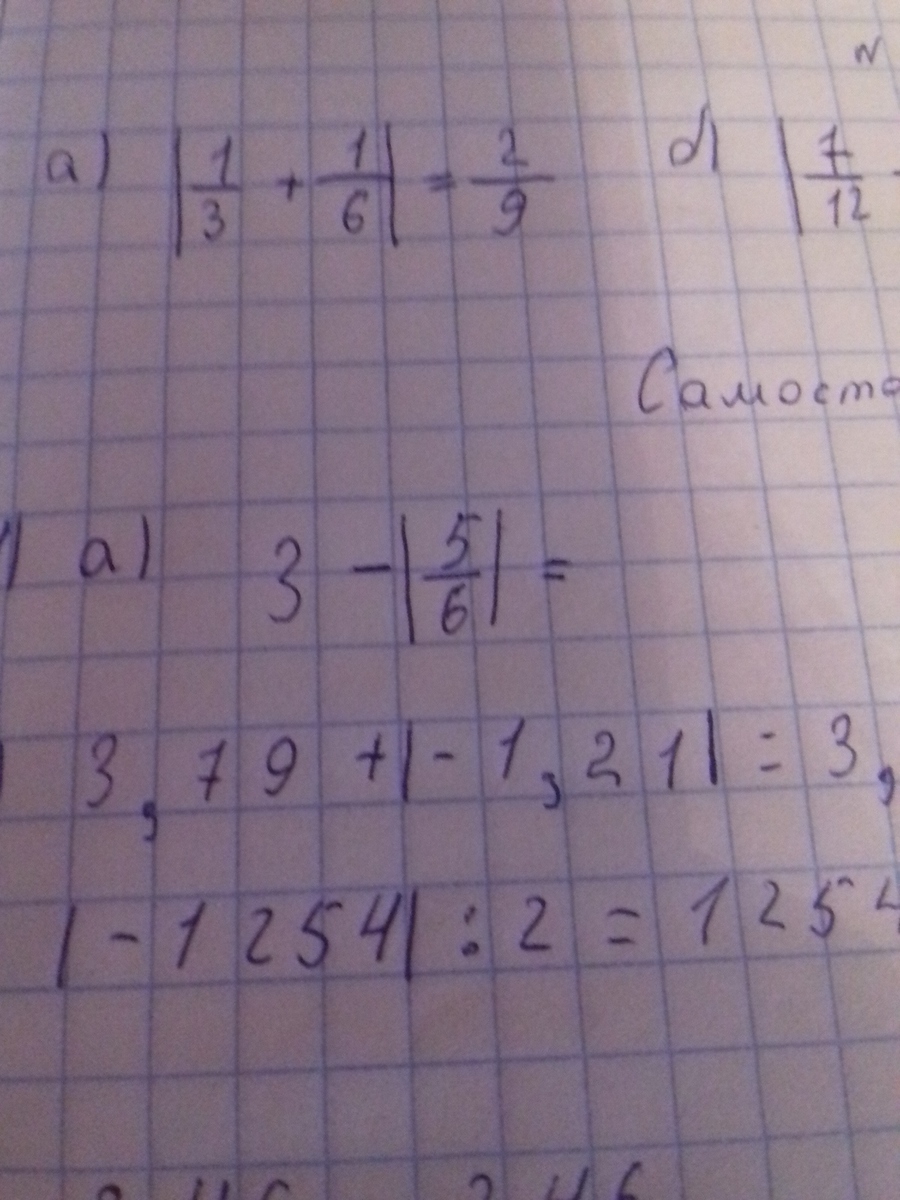 а) |1/3 + 1/6| = 2/9 б) |7/12
Самосто
а) 3 - |5/6| =
3,79 + |-1,21| = 3,
|-1254| : 2 = 1254